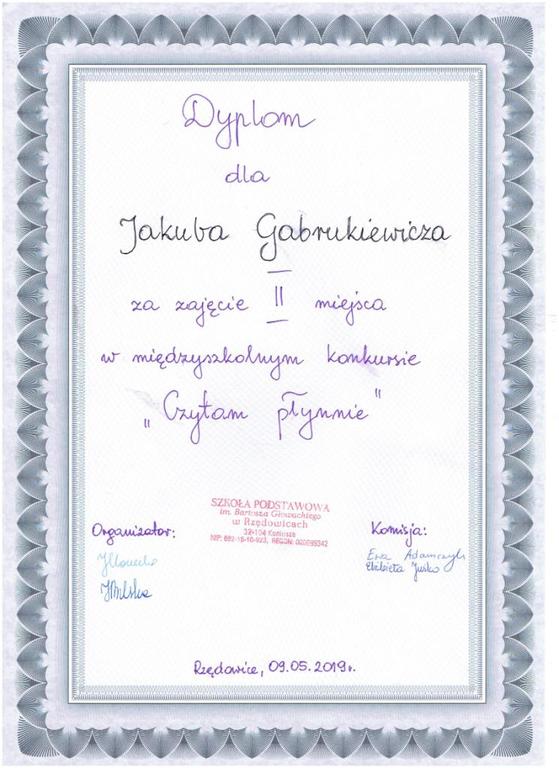 Dyplom
dla
Jakuba Gabrukiewicza
za zajęcie II miejsca
w międzyszkolnym konkursie
„Czytam płynnie"
SZKOŁA PODSTAWOWA
im. Bartosza Głowackiego
w Rzędowicach
32-104 Koniusza
Organizator:
Komisja:
Ewa Adamczyk
Elżbieta Jusko
Rzędowice, 09.05.2019r.